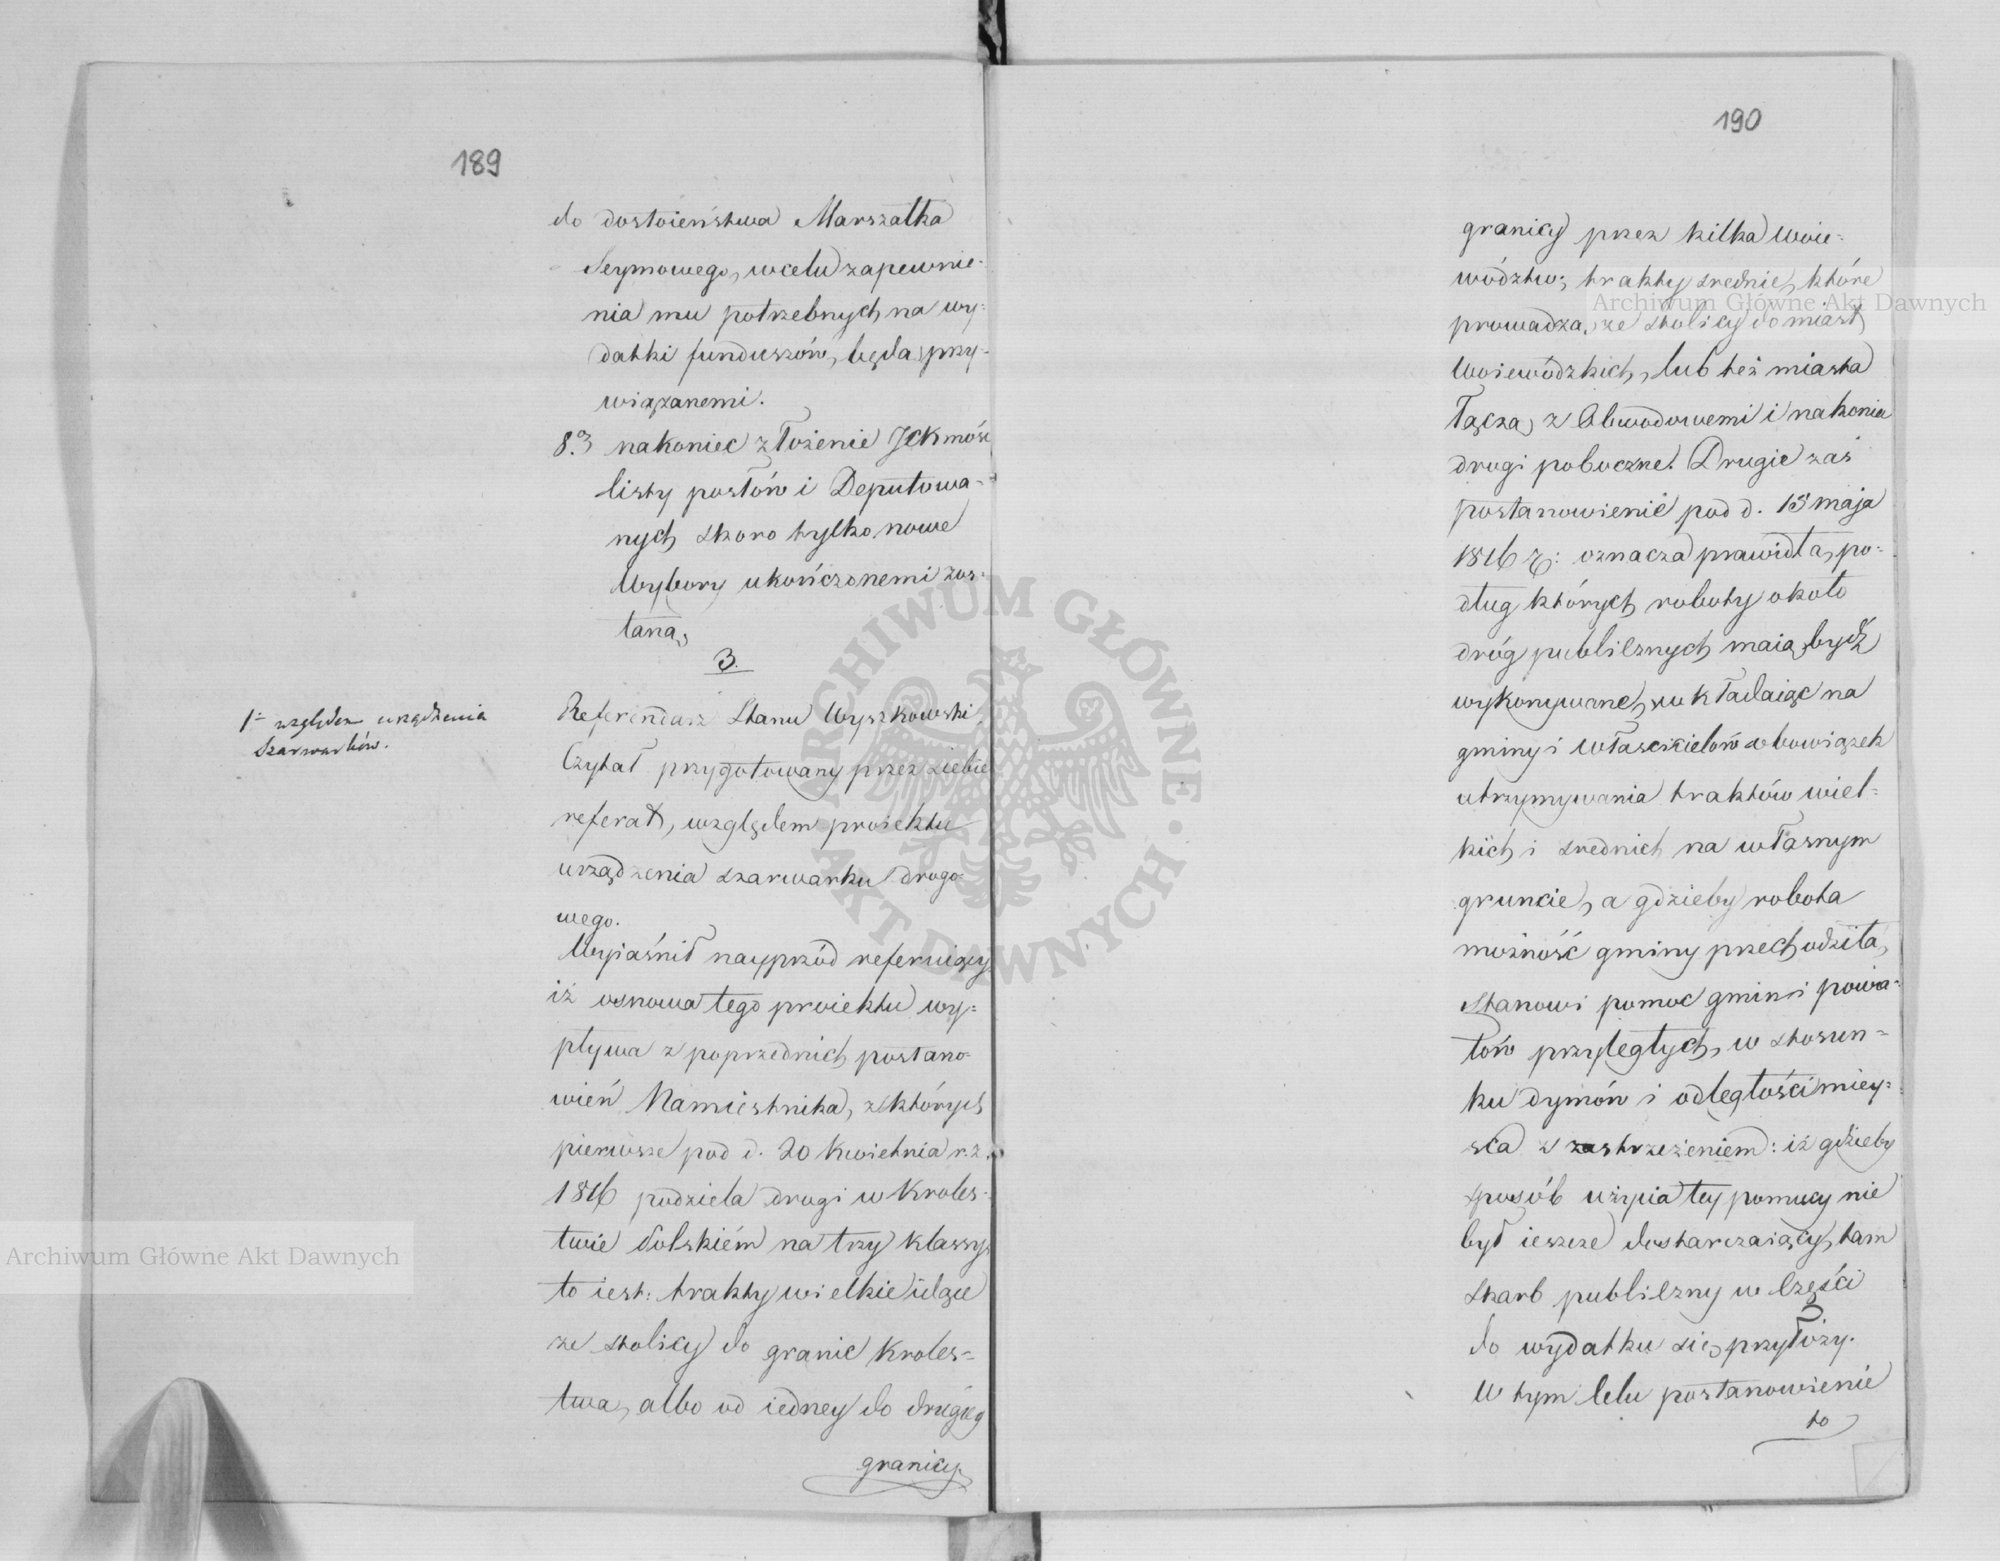 189
do dostoieństwa Marszałka
Seymowego, w celu zapewnie-
nia mu potrzebnych na wy-
datki funduszów, będą przy-
wiązanemi.
8.º nakoniec złożenie JCKmość
listy posłów i Deputowa-
nych skoro tylko nowe
Wybory ukończonemi zos-
taną,
3.
1º względem urządzenia
Szarwarków.
Referendarz Stanu Wyszkowski,
Czytał przygotowany przez siebie
referat, względem proiektu
urządzenia szarwarku drogo-
wego.
Wyiaśnił nayprzód referuiący
iż osnowa tego proiektu wy-
pływa z poprzednich postano-
wień Namiestnika, z których
pierwsze pod d. 20 Kwietnia r. z.
1816 podziela drogi w Króles-
twie Polskiém na trzy klassy,
to iest: trakty wielkie idące
ze stolicy do granic Króles-
twa, albo od iedney do drugiey
granicy.
190
granicy przez kilka Woie-
wództw; trakty srednie, które
prowadzą, ze stolicy do miast
Woiewódzkich, lub też miasta
Łączą, z Obwodowemi i nakonie
drogi poboczne. Drugie zaś
postanowienié pod d. 13 maja
1816 r: oznacza prawidła, po-
dług których roboty około
dróg publicznych maią bydź
wykonywane, wkładaiąc na
gminy i właścicielów obowiązek
utrzymywania traktów wiel-
kich i srednich na własnym
gruncie, a gdzieby robota
możność gminy przechodziła,
Stanowi pomoc gmin i powia-
tów przyległych, w stosun-
ku dymów i odległości miey-
sca z zastrzeżeniem: iż gdzieby
sposób użycia tey pomocy nie
był ieszcze dostarczaiący, tam
skarb publiczny w części
do wydatku się przyłoży.
W tym celu postanowienie
to
Archiwum Główne Akt Dawnych
Archiwum Główne Akt Dawnych
ARCHIWUM GŁÓWNE · AKT DAWNYCH ·